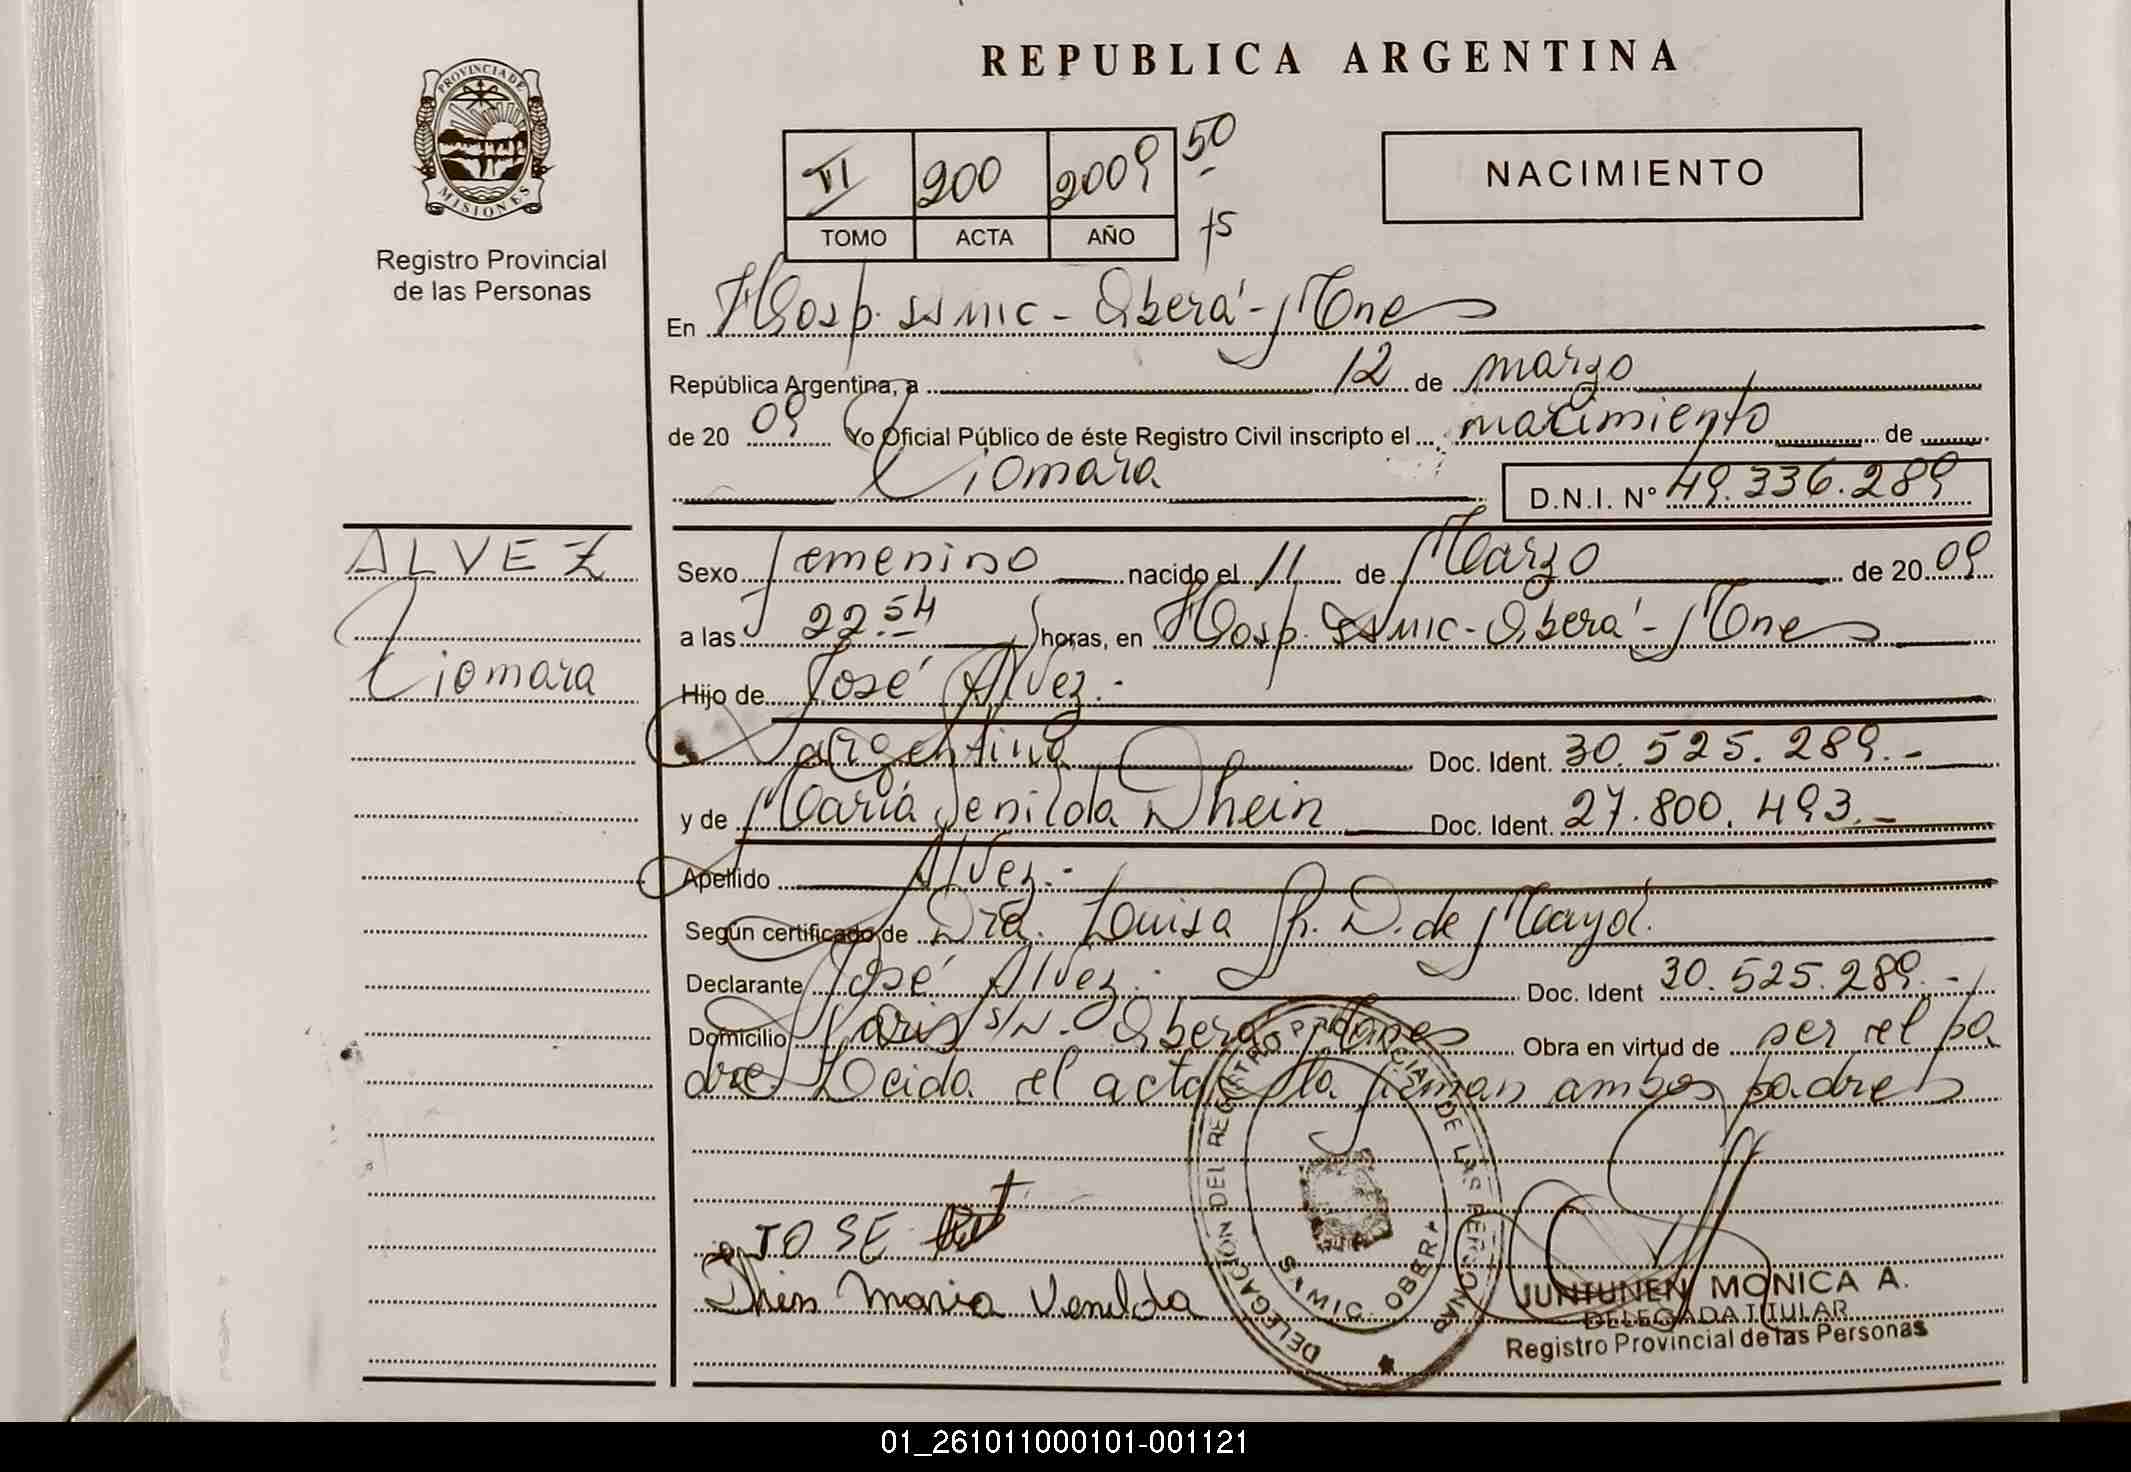 REPUBLICA ARGENTINA
PROVINCIA DE
MISIONES
Registro Provincial
de las Personas
VI 200 2009 50
TOMO ACTA AÑO
NACIMIENTO
En Hosp. SAMIC - Oberá - Mnes
República Argentina, a 12 de marzo
de 20 09 Yo Oficial Público de éste Registro Civil inscripto el nacimiento de
Xiomara
D.N.I. Nº 49.336.289
ALVEZ
Xiomara
Sexo femenino nacido el 11 de Marzo de 20 09
a las 22.54 horas, en Hosp. SAMIC - Oberá - Mnes
Hijo de José Alvez.-
argentina Doc. Ident. 30.525.289.-
y de María Venilda Dhein Doc. Ident. 27.800.493.-
Apellido Alvez.-
Según certificado de Dra. Luisa D. de Mayol.
Declarante José Alvez. Doc. Ident 30.525.289.-
Domicilio Paris s/N. Oberá Mnes Obra en virtud de ser el pa
dre Leida el acta la firman ambos padres
JOSE
Dhein Maria Venilda
DELEGACIÓN DEL REGISTRO PROVINCIAL DE LAS PERSONAS
SAMIC - OBERA
JUNTUNEN MONICA A.
DELEGADA TITULAR
Registro Provincial de las Personas
01_261011000101-001121